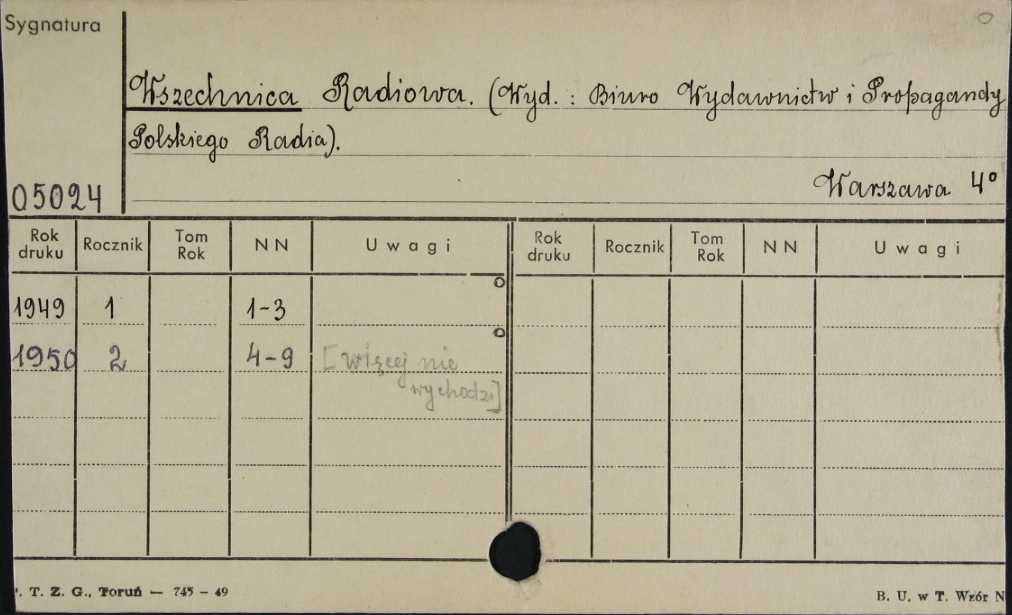 Sygnatura
Wszechnica Radiowa. (Wyd. : Biuro Wydawnictw i Propagandy
Polskiego Radia).
Warszawa 4°
05024
Rok druku Rocznik Tom Rok NN Uwagi Rok druku Rocznik Tom Rok NN Uwagi
1949 1 1-3
1950 2 4-9 [więcej nie
wychodzi]
. T. Z. G., Toruń — 745 - 49
B. U. w T. Wzór N